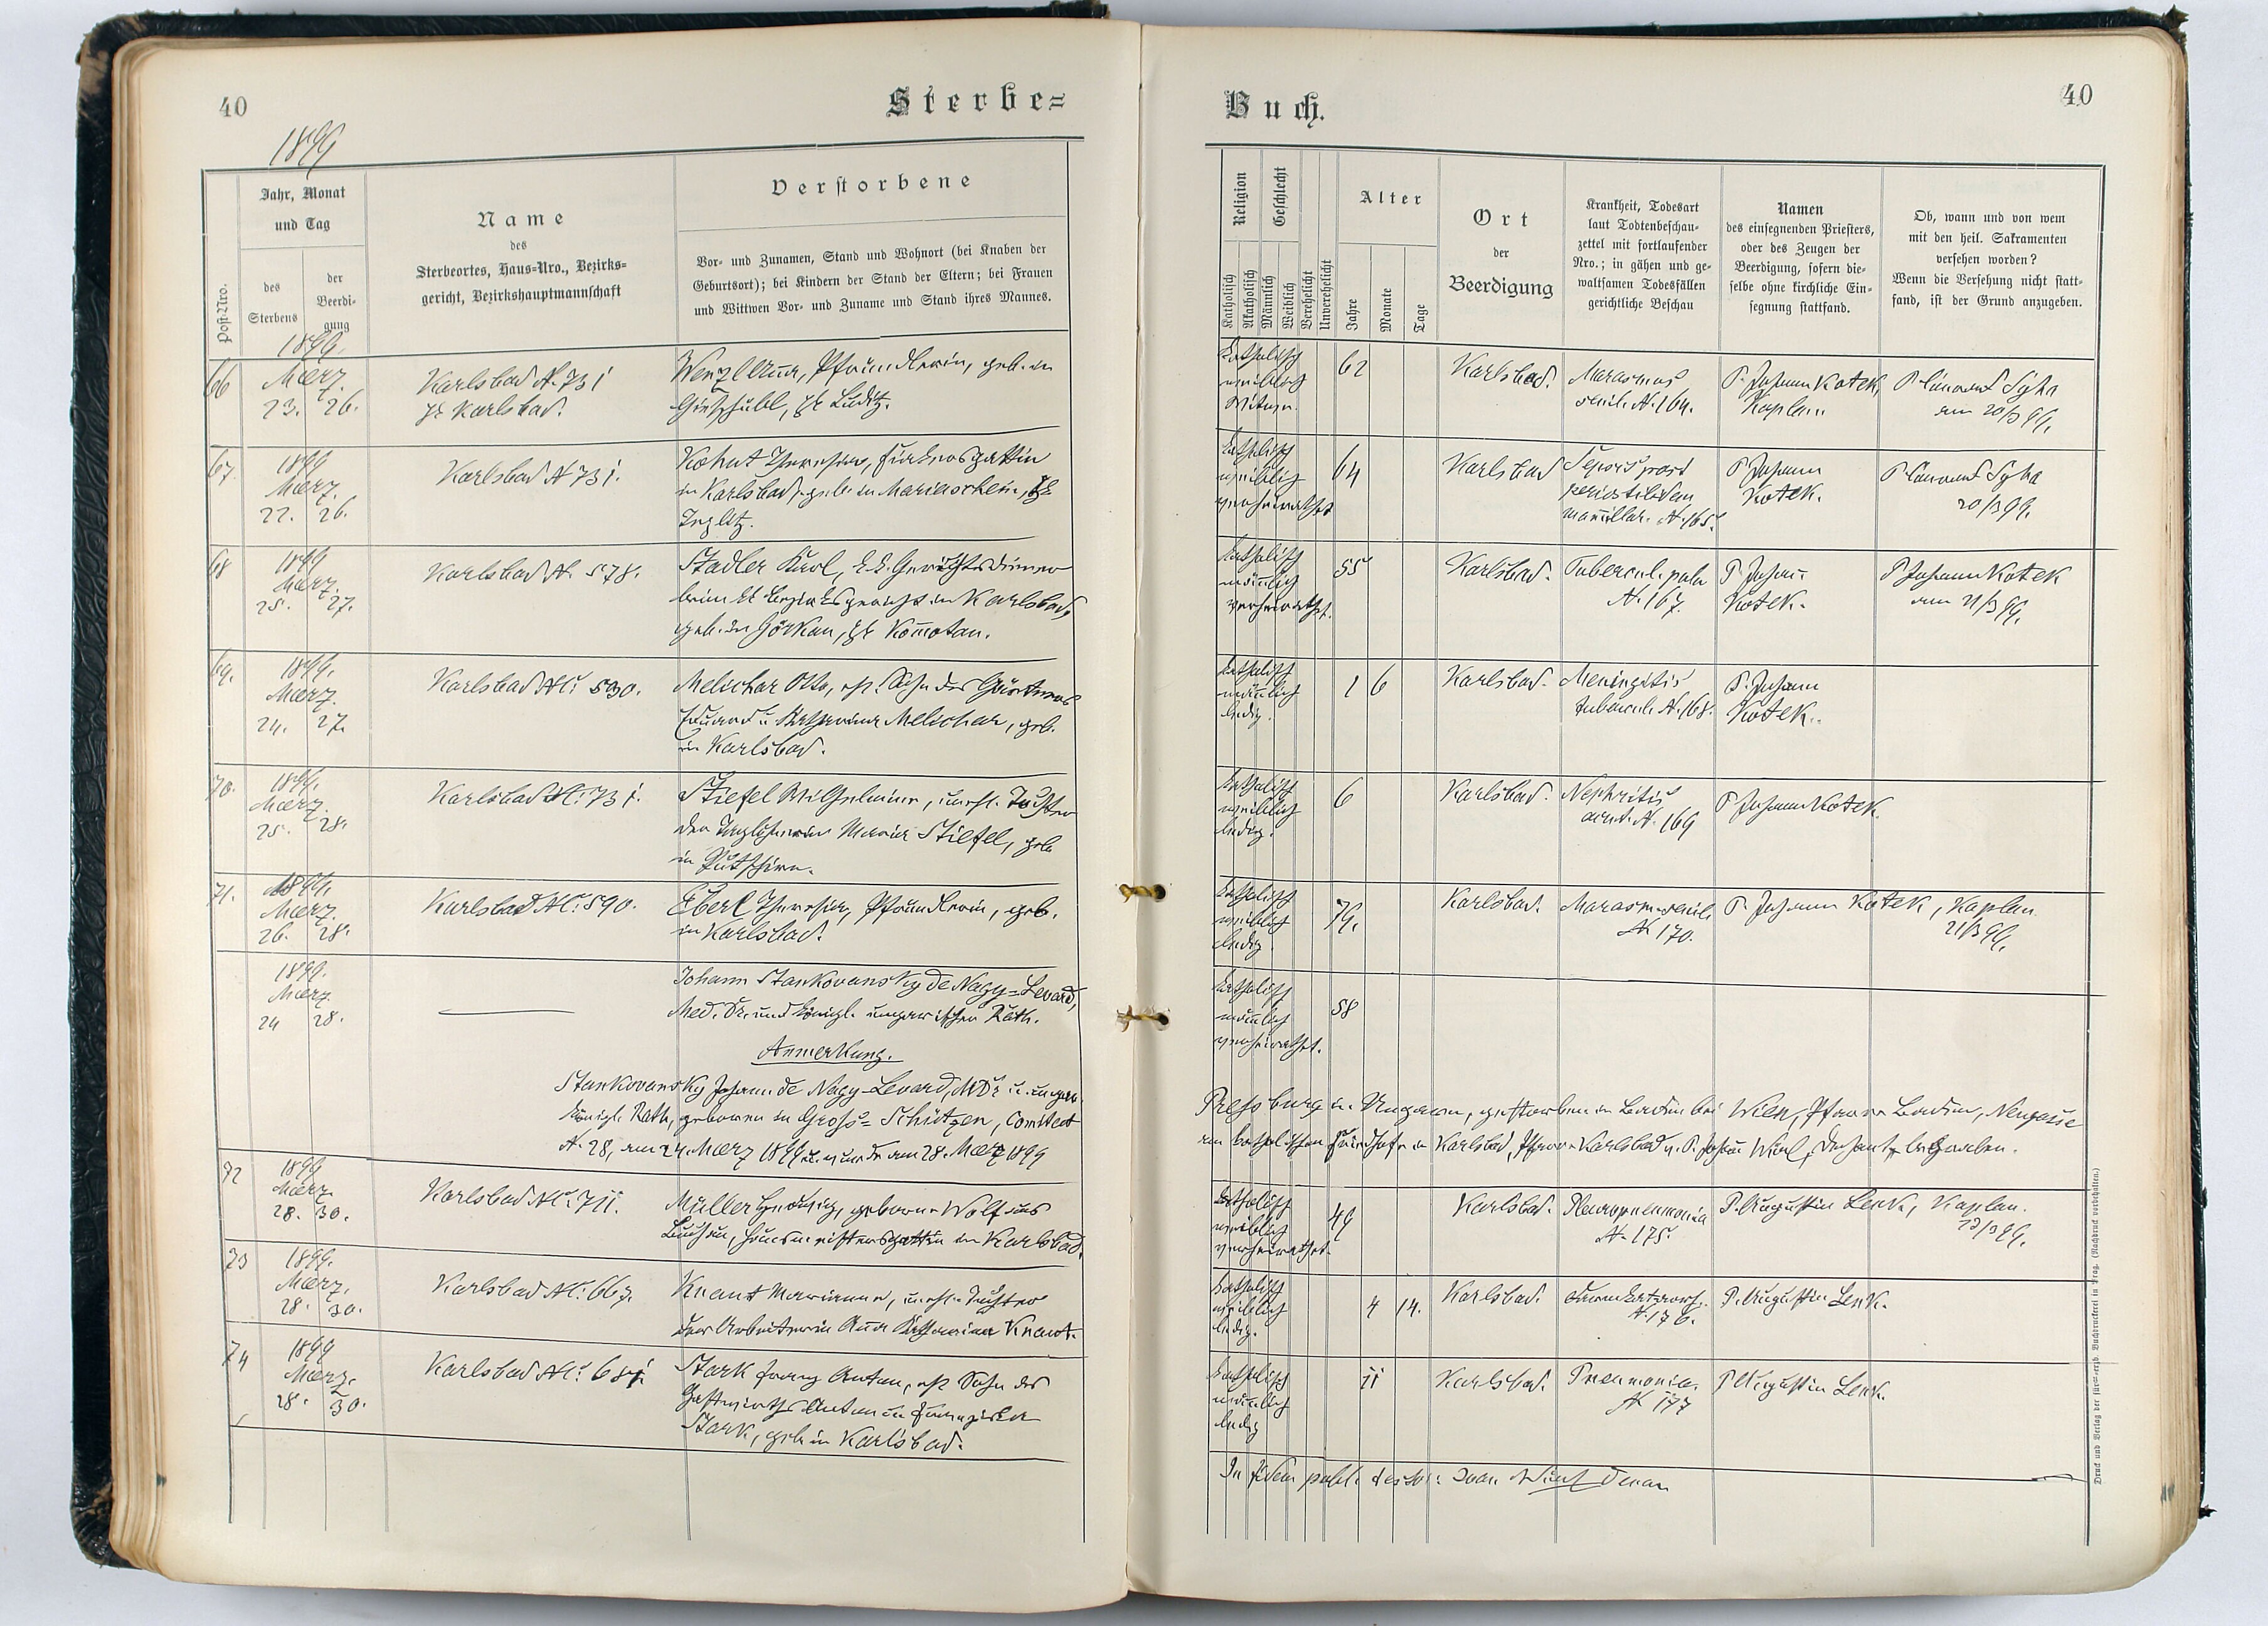 40
Sterbe=
1899
Post-Nro.
Jahr, Monat
und Tag
des
Sterbens
der
Beerdi-
gung
Name
des
Sterbeortes, Haus-Nro., Bezirks-
gericht, Bezirkshauptmannschaft
Verstorbene
Vor- und Zunamen, Stand und Wohnort (bei Knaben der
Geburtsort); bei Kindern der Stand der Eltern; bei Frauen
und Wittwen Vor- und Zuname und Stand ihres Mannes.
1899.
66
März.
23. 26.
Karlsbad N. 731
Karlsbad.
Wenzl Anna, Pfründlerin, geb. in
Gießhübl, Luditz.
67.
1899
März.
22. 26.
Karlsbad N 731.
Kohut Theresia, Fiakersgattin
in Karlsbad, geb. in Mariaschein,
Teplitz.
68
1899
März.
25. 27.
Karlsbad N. 578.
Stadler Karl, k.k. Gerichtsdiener
beim kk Bezirksgericht in Karlsbad,
geb. in Görkau, Komotau.
69.
1899.
März.
24. 27.
Karlsbad N: 530.
Melichar Otto, Sohn des Gärtners
Eduard u. Katharina Melichar, geb.
in Karlsbad.
70.
1899.
März.
25. 28.
Karlsbad N: 731.
Stiefel Wilhelmine, unehl. Tochter
der Taglöhnerin Maria Stiefel, geb
in Putschirn.
71.
1899.
März.
26. 28.
Karlsbad N: 590.
Eberl Theresia, Pfründlerin, geb.
in Karlsbad.
1899.
März.
24 28.
Johann Stankovansky de Nagy=Levard,
Med. Dr. und königl. ungarischer Rath.
Anmerkung.
Stankovansky Johann de Nagy-Levard, MDr u. ungar.
königl. Rath, geboren in Gross=Schützen, Comitat
N. 28, am 24. März 1899 u. wurde am 28. März 1899
72
1899
März.
28. 30.
Karlsbad N: 711.
Müller Hedwig, geborne Wolf aus
Hausmeistersgattin in Karlsbad.
73
1899.
März.
28. 30.
Karlsbad N: 667.
Knaut Marianna, unehl. Tochter
der Arbeiterin Anna Katharina Knaut.
74
1899
März.
28. 30.
Karlsbad N: 681
Stark Franz Anton, Sohn des
Gastwirths Anton u Franziska
Stark, geb. in Karlsbad.
Buch.
40
Religion
Geschlecht
Katholisch
Akatholisch
Männlich
Weiblich
Verehelicht
Unverehelicht
Alter
Jahre
Monate
Tage
Ort
der
Beerdigung
Krankheit, Todesart
laut Todtenbeschau-
zettel mit fortlaufender
Nro.; in gähen und ge-
waltsamen Todesfällen
gerichtliche Beschau
Namen
des einsegnenden Priesters,
oder des Zeugen der
Beerdigung, sofern die-
selbe ohne kirchliche Ein-
segnung stattfand.
Ob, wann und von wem
mit den heil. Sakramenten
versehen worden?
Wenn die Versehung nicht statt-
fand, ist der Grund anzugeben.
katholisch
weiblich
Witwe.
62
Karlsbad.
Marasmus
senil. N. 164.
P. Johann Kotek,
Kaplan
am 20/3 99.
katholisch
weiblich
verheirathet
64
Karlsbad
Sepsis post
periostitidem
N. 165.
P Johann
Kotek.
20/3 99.
katholisch
männlich
verheirathet.
55
Karlsbad.
Tubercul. pulm
N. 167.
P Johann
Kotek.
P Johann Kotek
am 21/3 99.
katholisch
männlich
ledig.
1 6
Karlsbad.
Meningitis
tubercul. N. 168.
P. Johann
Kotek.
katholisch
weiblich
ledig.
6
Karlsbad.
Nephritis
acut. N. 169
P Johann Kotek.
katholisch
weiblich
ledig.
74.
Karlsbad.
Marasm. senil.
N. 170.
P. Johann Kotek, Kaplan
21/3 99.
katholisch
männlich
verheirathet.
58
Pressburg in Ungarn, gestorben in Baden bei Wien, Pfarre Baden, Neugasse
am katholischen Friedhofe in Karlsbad, Pfarre Karlsbad v. P. Johann Dechant, begraben.
katholisch
weiblich
verheirathet.
49
Karlsbad.
Pleuropneumonia
N. 175.
P. Augustin Lenk, Kaplan.
katholisch
weiblich
ledig.
4 14.
Karlsbad.
Darmkatarrh.
N. 176.
P. Augustin Lenk.
katholisch
männlich
ledig
11
Karlsbad.
Pneumonia.
N 177
P Augustin Lenk.
In fidem
Druck und Verlag der fürst-erzb. Buchdruckerei in Prag. (Nachdruck vorbehalten.)